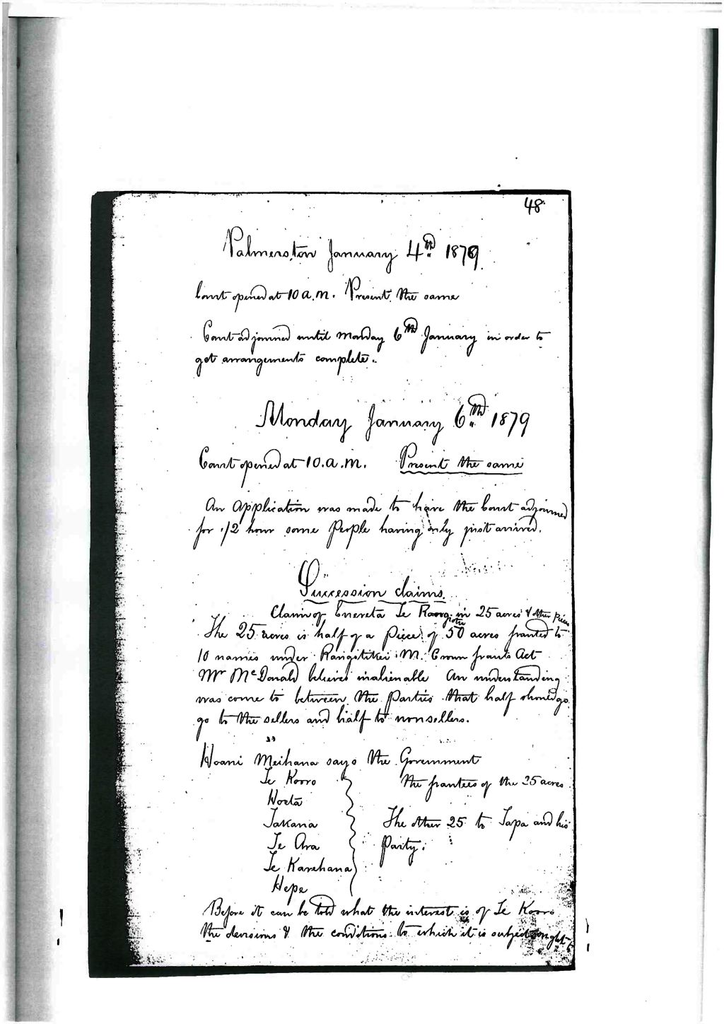 48
Palmerston January 4th 1879
Court opened at 10 a.m. Present the same
Court adjourned until Monday 6th January in order to
get arrangements complete.
Monday January 6th 1879
Court opened at 10.a.m. Present the same
An Application was made to have the Court adjourned
for 1/2 hour some People having only just arrived.
Succession claims
Claim of Enereta Te in 25 acres & other Piece
The 25 acres is half of a Piece of 50 acres granted to
10 names under Rangitikei M. Crown grants Act
Mr McDonald believes inalienable An understanding
was come to between the Parties that half should go
go to the sellers and half to nonsellers.
Hoani Meihana says the Government
Te Kooro the grantees of the 25 acres
Hoeta
Takana The other 25 to Tapa and his
Te Ara Party.
Te Karehana
Hepa
Before it can be told what the interest is of Te Kooro
the decisions & the conditions to which it is subject ought